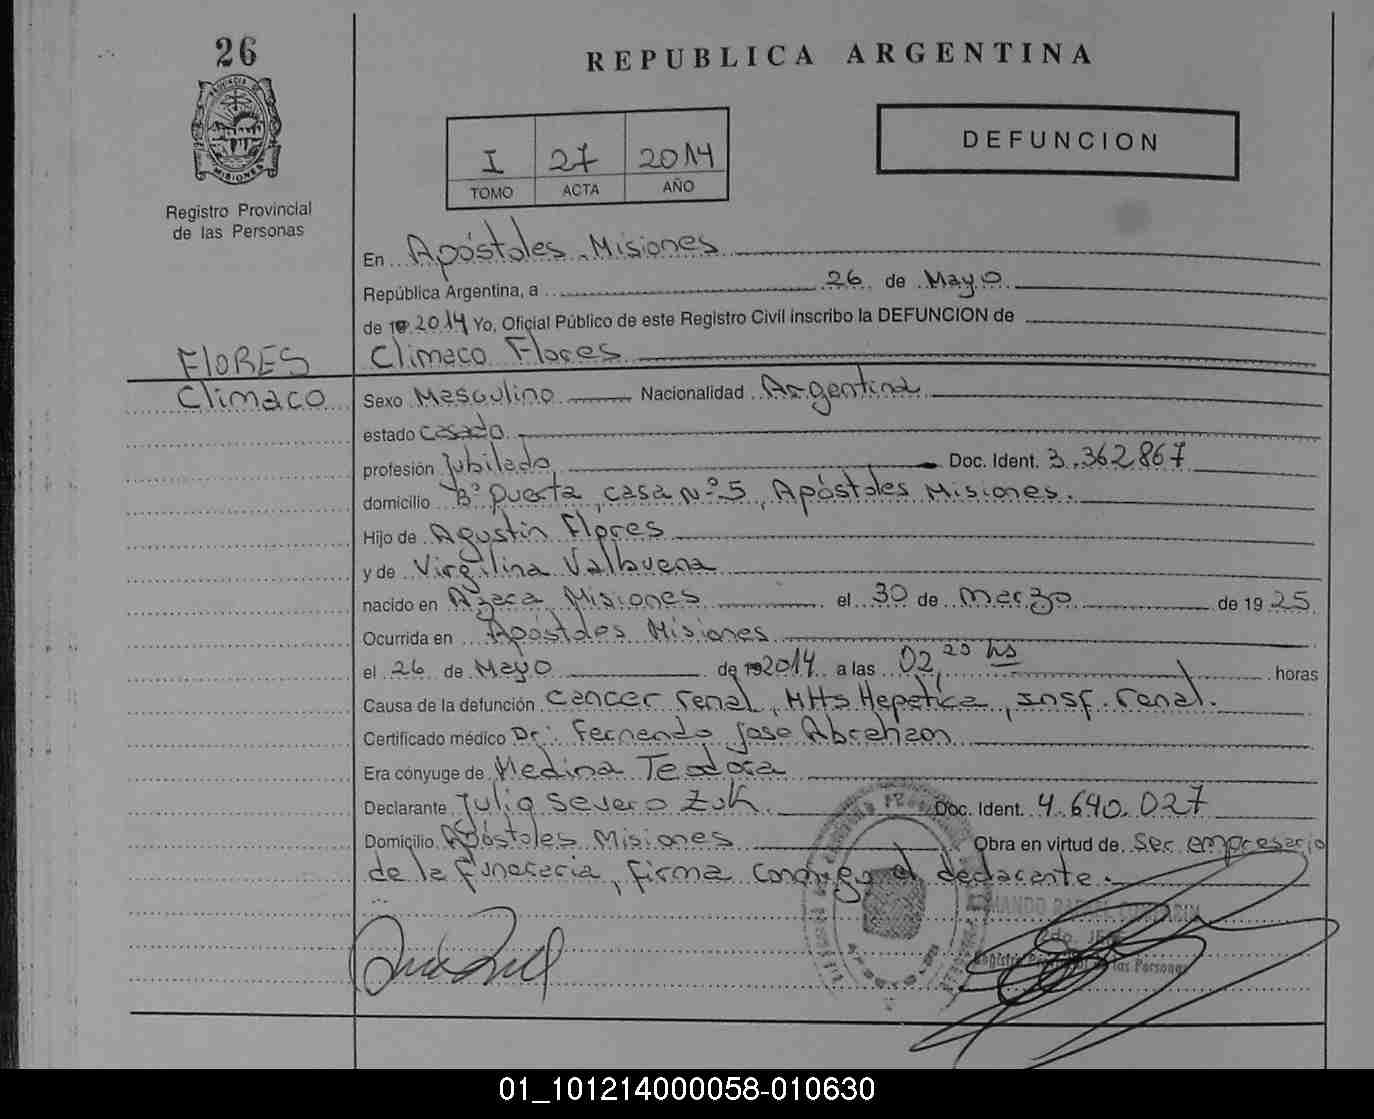 26
REPUBLICA ARGENTINA
PROVINCIA DE MISIONES
I 27 2014
TOMO ACTA AÑO
DEFUNCION
Registro Provincial
de las Personas
En Apóstoles Misiones
República Argentina, a 26 de Mayo
de 2014 Yo, Oficial Público de este Registro Civil inscribo la DEFUNCION de
FLORES Climaco Flores
Climaco Sexo Masculino Nacionalidad Argentina
estado casado
profesión Jubilado Doc. Ident. 3.362867
domicilio B° puerta, casa N° 5, Apóstoles Misiones.
Hijo de Agustin Flores
y de Virgilina Valbuena
nacido en Azara Misiones el 30 de marzo de 1925
Ocurrida en Apóstoles Misiones
el 26 de Mayo de 2014 a las 02,20 hs horas
Causa de la defunción cancer renal, MHts Hepetica, insf. renal.
Certificado médico Dr: Fernando Jose Abraham
Era cónyuge de Medina Teodora
Declarante Julio Severo Zuk Doc. Ident. 4.640.027
Domicilio Apóstoles Misiones Obra en virtud de ser empresario
de la funeraria, firma conmigo el declarante.
2do. JEFE
Registro Provincial de las Personas
01_101214000058-010630